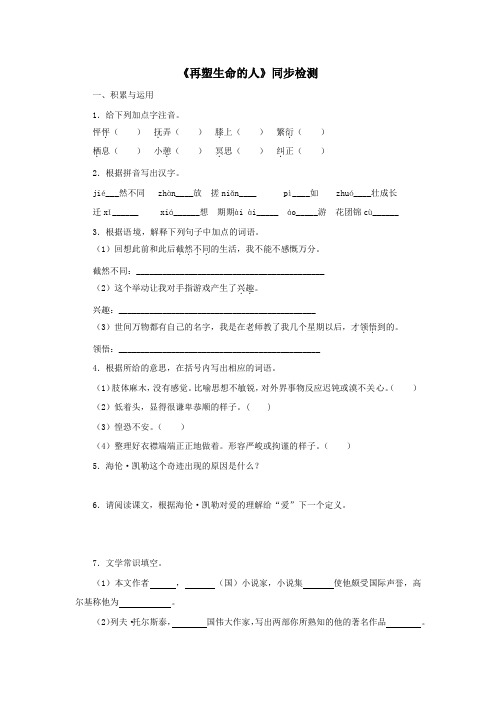 《再塑生命的人》同步检测
一、积累与运用
1．给下列加点字注音。
怦怦（ ） 抚弄（ ） 膝上（ ） 繁衍（ ）
栖息（ ） 小憩（ ） 冥思（ ） 纠正（ ）
2．根据拼音写出汉字。
jié___然不同 zhàn____放 搓niǎn____ pì____如 zhuó____壮成长
迁xǐ______ xiá______想 期期ài ài_____ áo_____游 花团锦cù______
3．根据语境，解释下列句子中加点的词语。
（1）回想此前和此后截然不同的生活，我不能不感慨万分。
截然不同：____________________________________________
（2）这个举动让我对手指游戏产生了兴趣。
兴趣：______________________________________________
（3）世间万物都有自己的名字，我是在老师教了我几个星期以后，才领悟到的。
领悟：_______________________________________________
4．根据所给的意思，在括号内写出相应的词语。
（1）肢体麻木，没有感觉。比喻思想不敏锐，对外界事物反应迟钝或漠不关心。（ ）
（2）低着头，显得很谦卑恭顺的样子。( )
（3）惶恐不安。（ ）
（4）整理好衣襟端端正正地做着。形容严峻或拘谨的样子。（ ）
5．海伦·凯勒这个奇迹出现的原因是什么？
6．请阅读课文，根据海伦·凯勒对爱的理解给“爱”下一个定义。
7．文学常识填空。
（1）本文作者 ， （国）小说家，小说集 使他颇受国际声誉，高
尔基称他为 。
（2）列夫·托尔斯泰， 国伟大作家，写出两部你所熟知的他的著名作品 。